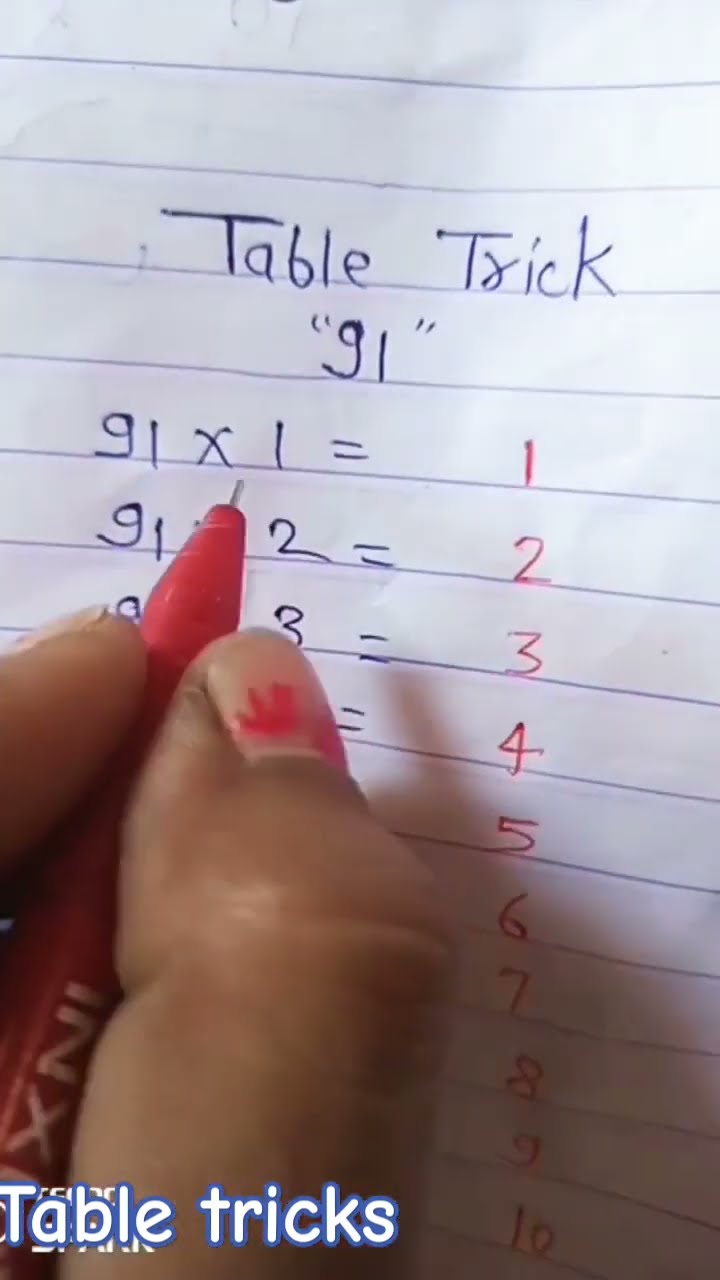 Table Trick
"91"
91 x 1 = 1
91 2 = 2
9 3 = 3
= 4
5
6
7
8
9
10
Table tricks